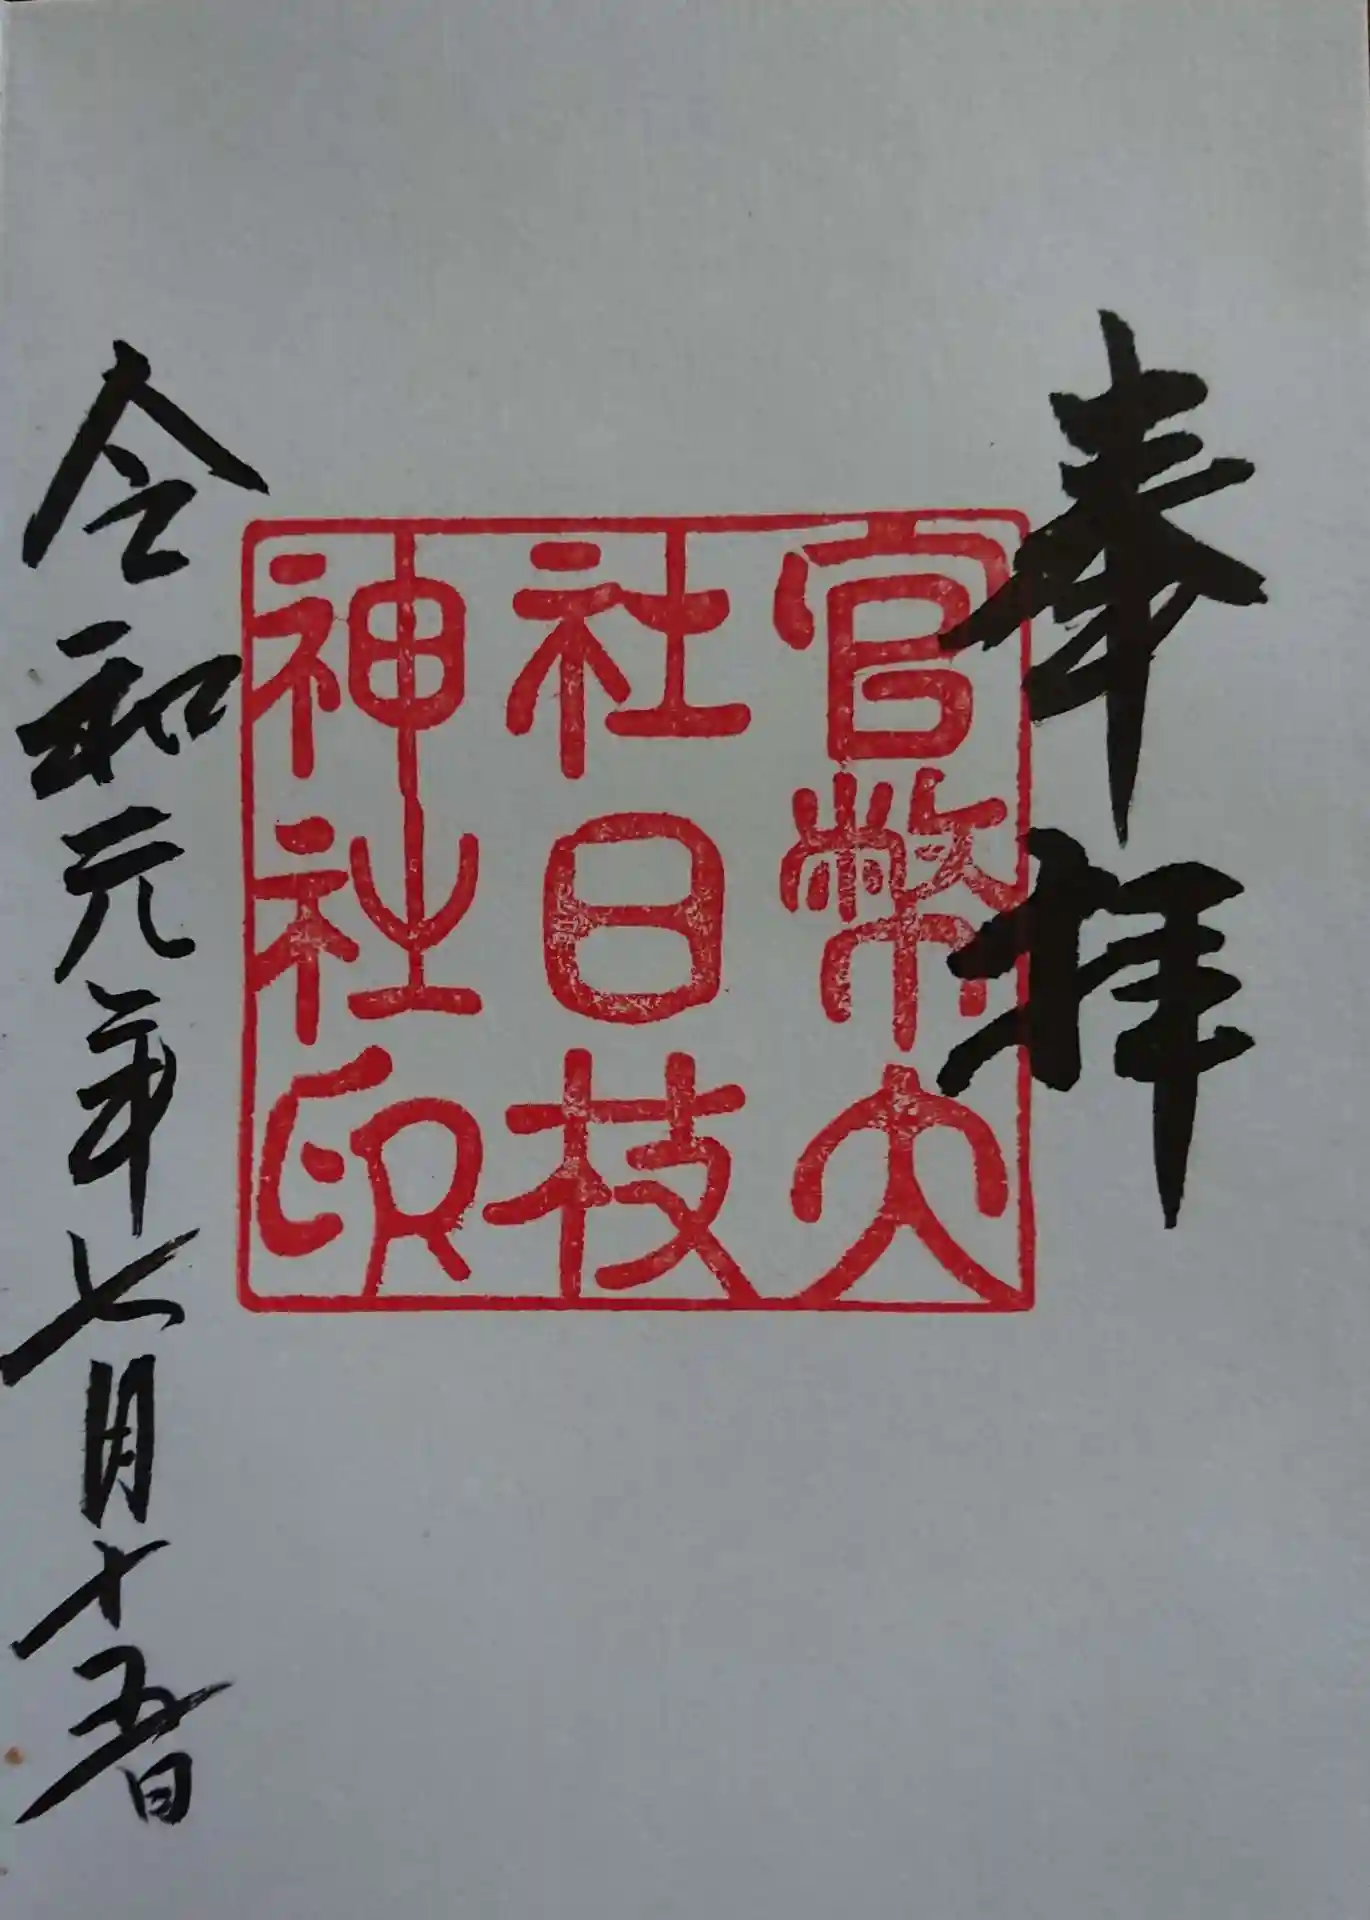 奉拝
官幣大
社日枝
神社印
令和元年七月十五日